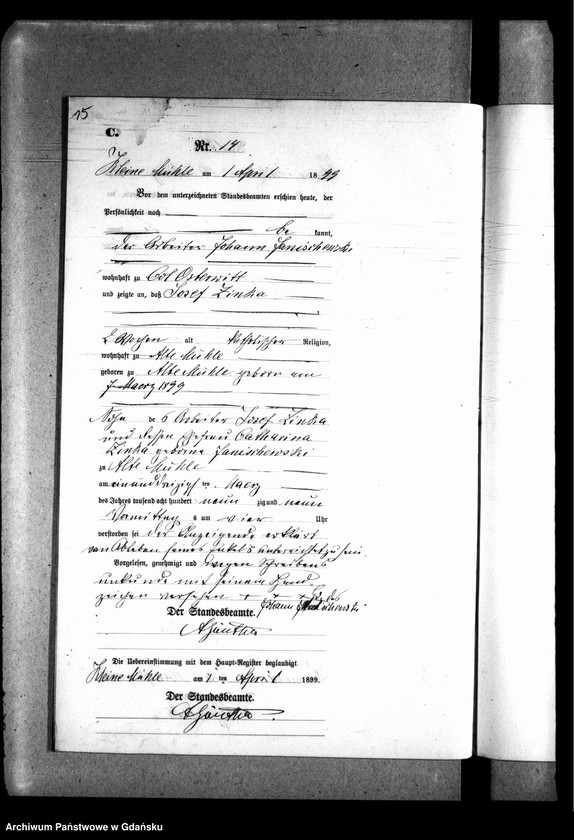 15
C.
Nr. 14
Kleine Mühle am 1 April 1899
Vor dem unterzeichneten Standesbeamten erschien heute, der
Persönlichkeit nach
be kannt,
der Arbeiter Johann Janischewski
wohnhaft zu Col Osterwitt
und zeigte an, daß Josef Zinka
alt katholischer Religion,
wohnhaft zu Alte Mühle
geboren zu Alte Mühle geborn am
Maerz 1899
Sohn des Arbeiter Josef Zinka
und dessen Ehefrau Catharina
Zinka geborne Janischewski
zu Alte Mühle
am einunddreizigsten Maerz
des Jahres tausend acht hundert neun zig und neun
Vormittag s um vier Uhr
verstorben sei der Anzeigende erklärt
von Ableben seines Enkels unterrichtet zu sein
Vorgelesen, genehmigt und wegen Schreibens
unkunde mit seinem Hand
zeichen versehen + + +
Johann Janischewski
Der Standesbeamte.
AGünther
Die Uebereinstimmung mit dem Haupt-Register beglaubigt
Kleine Mühle am 1 ten April 1899.
Der Standesbeamte.
AGünther
Archiwum Państwowe w Gdańsku